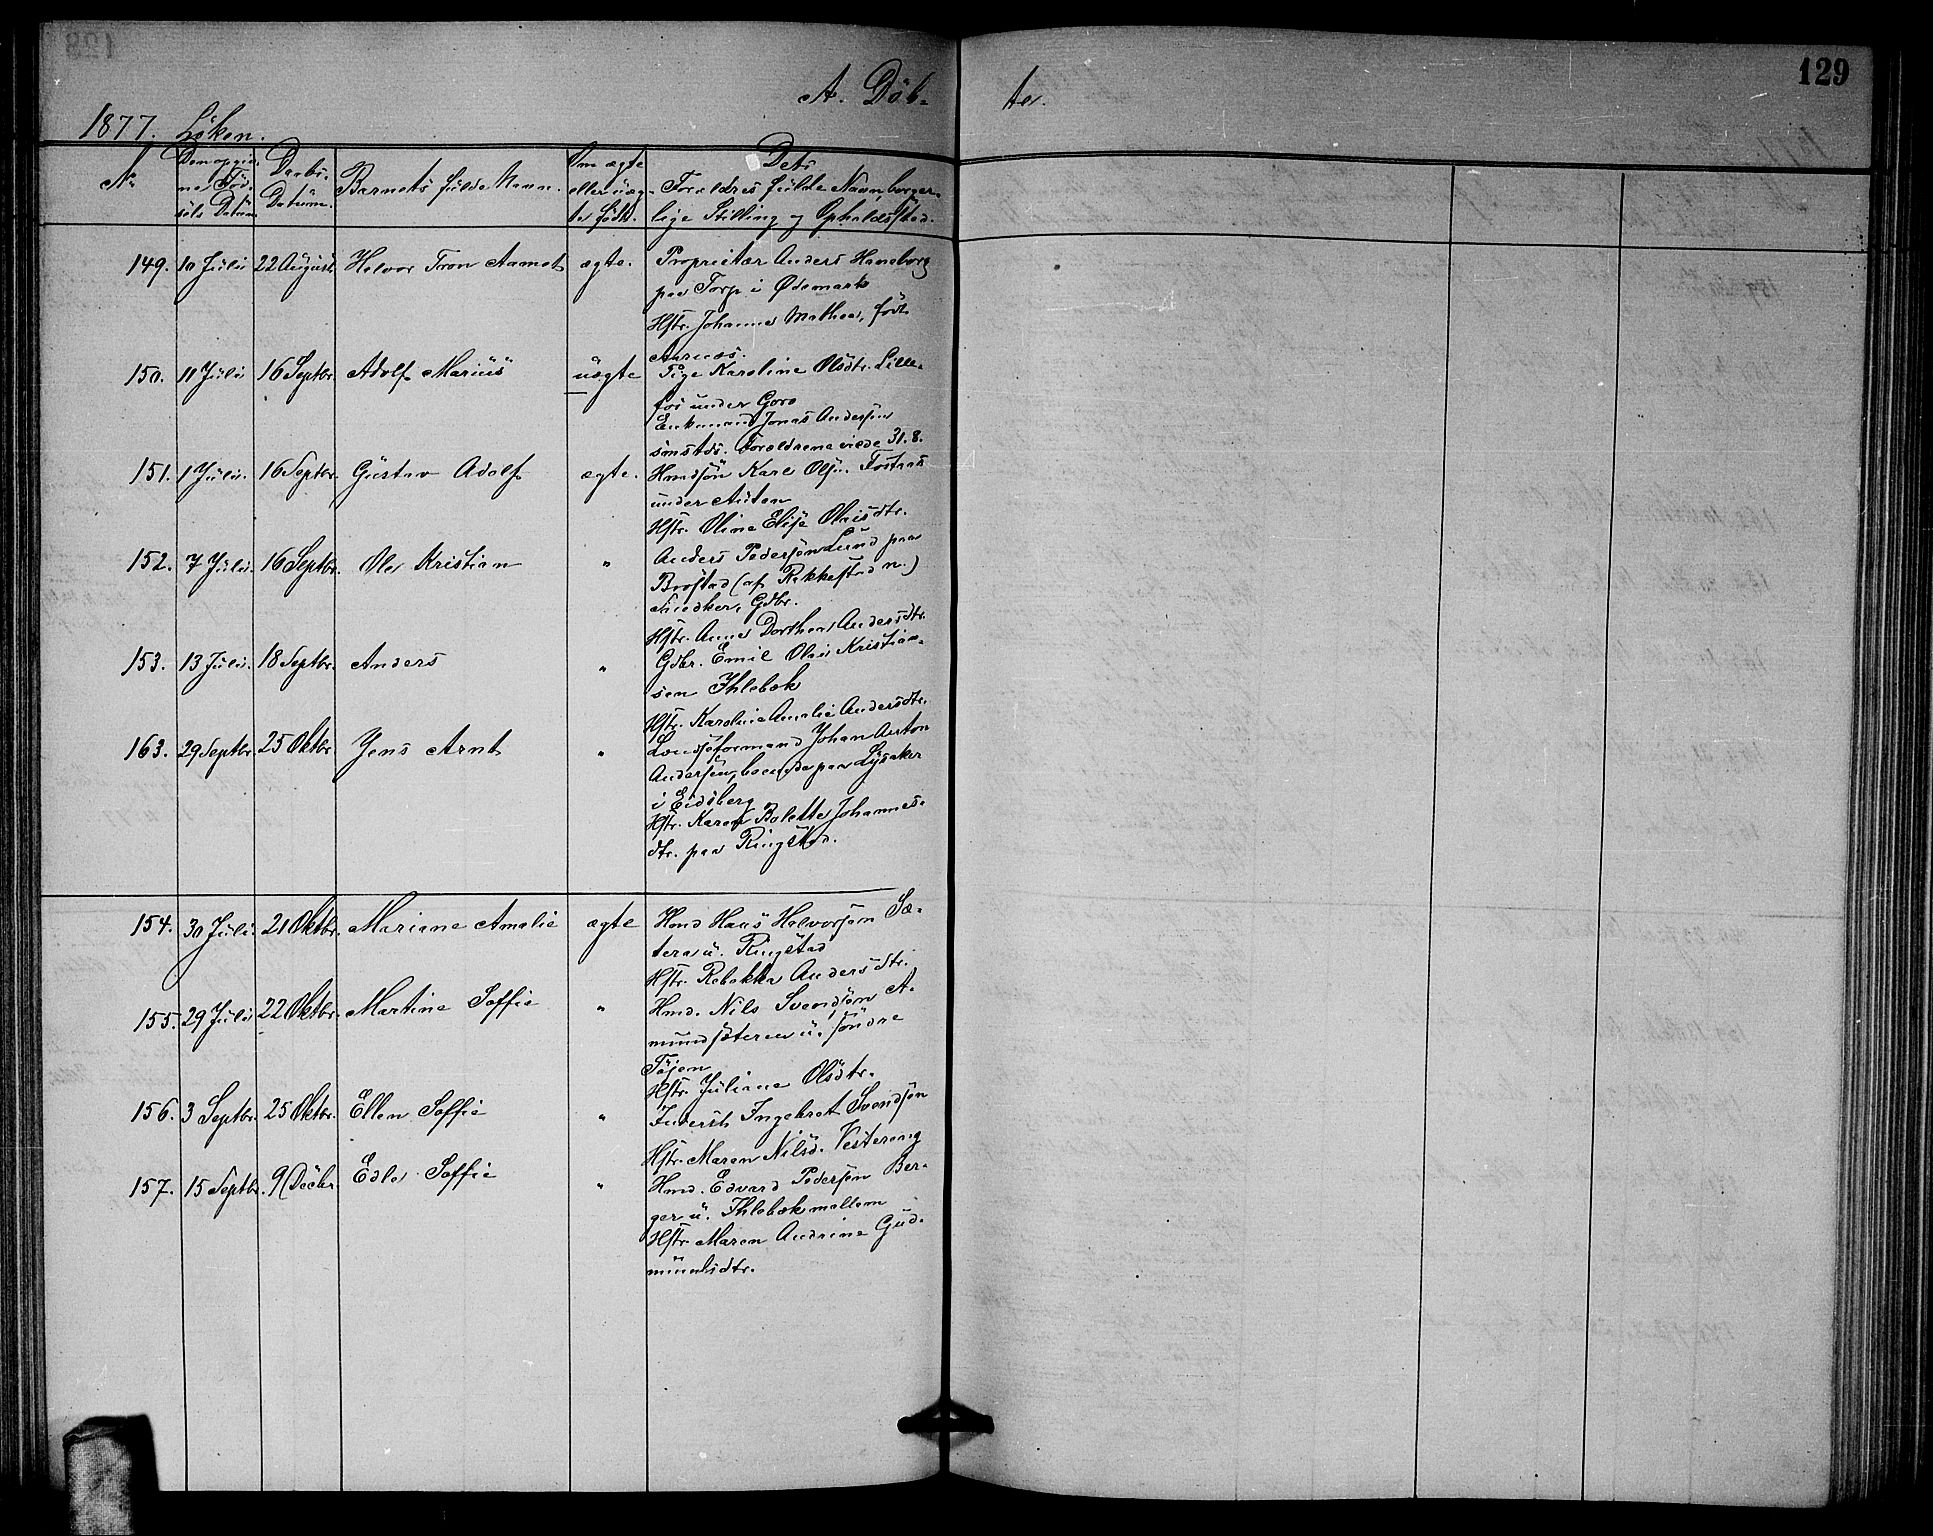 129
A. Döb- ter.
1877. Löken.
No
Den opgiv.
ne Föd-
sels Datum
Daabs-
Datum.
Barnets fulde Navn.
Om ægte
eller uæg-
te födt.
Dets
Forældres fulde Navn, borger-
lige Stilling og Opholdssted.
149. 10 Juli 22 August Halvor Tron Aamot ægte. Proprietær Anders Haneborg
paa Torp i Ødemark
Hstr. Johanne Mathea, födt
Aarnæs.
150. 11 Juli 16 Septbr. Adolf Marius uægte Pige Karoline Olsdtr. Lille-
fos under Gora
Enkemand Jonas Andersen
smstds. Forældrene viede 31.8.
151. 1 Juli. 16 Septbr. Gustav Adolf ægte. Hmdsön Karl Olsen Fosnæs
under
Hstr. Oline Elise Olaisdtr.
152. 7 Juli. 16 Septbr. Ole Kristian " Anders Pedersen Lund paa
Brostad (af Rakkestad n.)
Snedker, Gdbr.
Hstr. Anne Dorthea Andersdtr.
153. 13 Juli. 18 Septbr. Anders " Gdbr. Emil Olai Kristian-
sen Ihlebæk
Hstr. Karoline Amalie Andersdtr.
163. 29 Septbr. 25 Oktbr. Jens Arnt " Johan Anton
Andersen, boende paa Lysaker
i Eidsberg
Hstr. Karen Bolette Johannes-
dtr. paa Ringstad.
154. 30 Juli. 21 Oktbr. Mariane Amalie ægte Hmd Hans Halvorsen Sæ-
tera u. Ringstad
Hstr. Rebekka Andersdtr.
155. 29 Juli 22 Oktbr. Martine Soffie " Hmd. Nils Svendsen A-
mundsæteren u. söndre
Töien
Hstr. Juliane Olsdtr.
156. 3 Septbr. 25 Oktbr. Ellen Soffie " Inderst Ingebret Svendsen
Hstr. Maren Nilsd. Vestereng
157. 15 Septbr. 9 Decbr. Edle Soffie " Hmd. Edvard Pedersen Ber-
ger u. Ihlebæk mellem
Hstr. Maren Andrine Gud-
mundsdtr.